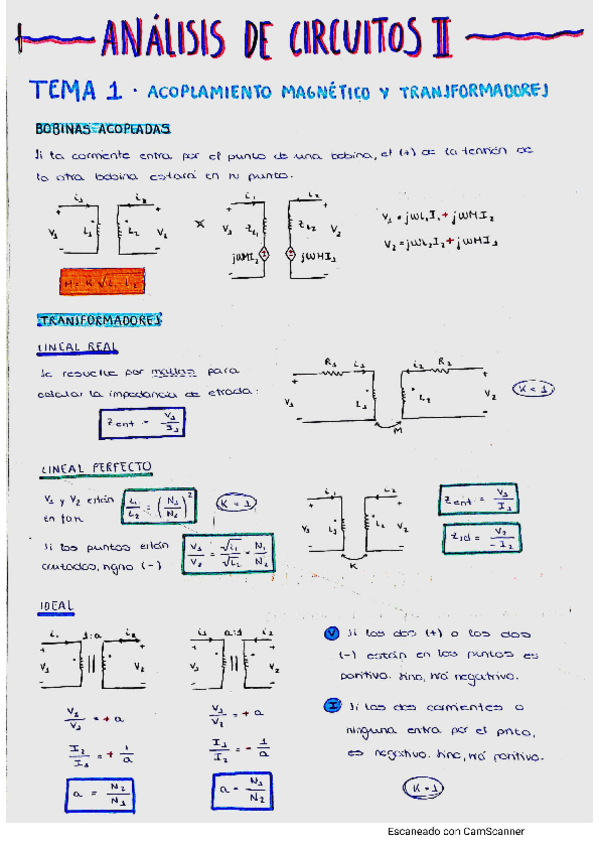 ANÁLISIS DE CIRCUITOS II
TEMA 1 · ACOPLAMIENTO MAGNÉTICO Y TRANSFORMADORES
BOBINAS ACOPLADAS
Si la corriente entra por el punto de una bobina, el (+) de la tensión de
la otra bobina estará en su punto.
i₁ i₂
+ V₁ L₁ L₂ V₂ +
i₁ i₂
+ V₁ ZL₁ ZL₂ V₂ +
jωMI₂ jωMI₁
V₁ = jωL₁I₁ + jωMI₂
V₂ = jωL₂I₂ + jωMI₁
M = K √L₁·L₂
TRANSFORMADORES
LINEAL REAL
Se resuelve por mallas para
calcular la impedancia de etrada:
Zent = V₁/I₁
R₁ i₁ i₂ R₂
+ V₁ L₁ L₂ V₂ +
M
K < 1
LINEAL PERFECTO
V₁ y V₂ están
en fase.
L₁/L₂ = (N₁/N₂)²
K = 1
Si los puntos están
cruzados, signo (-)
V₁/V₂ = √L₁/√L₂ = N₁/N₂
i₁ i₂
+ V₁ L₁ L₂ V₂ +
K
Zent = V₁/I₁
V₂/-I₂
IDEAL
i₁ 1:a i₂
+ V₁ V₂ +
V₂/V₁ = + a
I₂/I₁ = + 1/a
a = N₂/N₁
i₁ a:1 i₂
+ V₁ V₂ +
V₁/V₂ = + a
I₁/I₂ = - 1/a
a = N₁/N₂
V Si los dos (+) o los dos
(-) están en los puntos es
positivo. Sino, irá negativo.
I Si las dos corrientes o
ninguna entra por el pnto,
es negativo. Sino, irá positivo.
K = 1
Escaneado con CamScanner